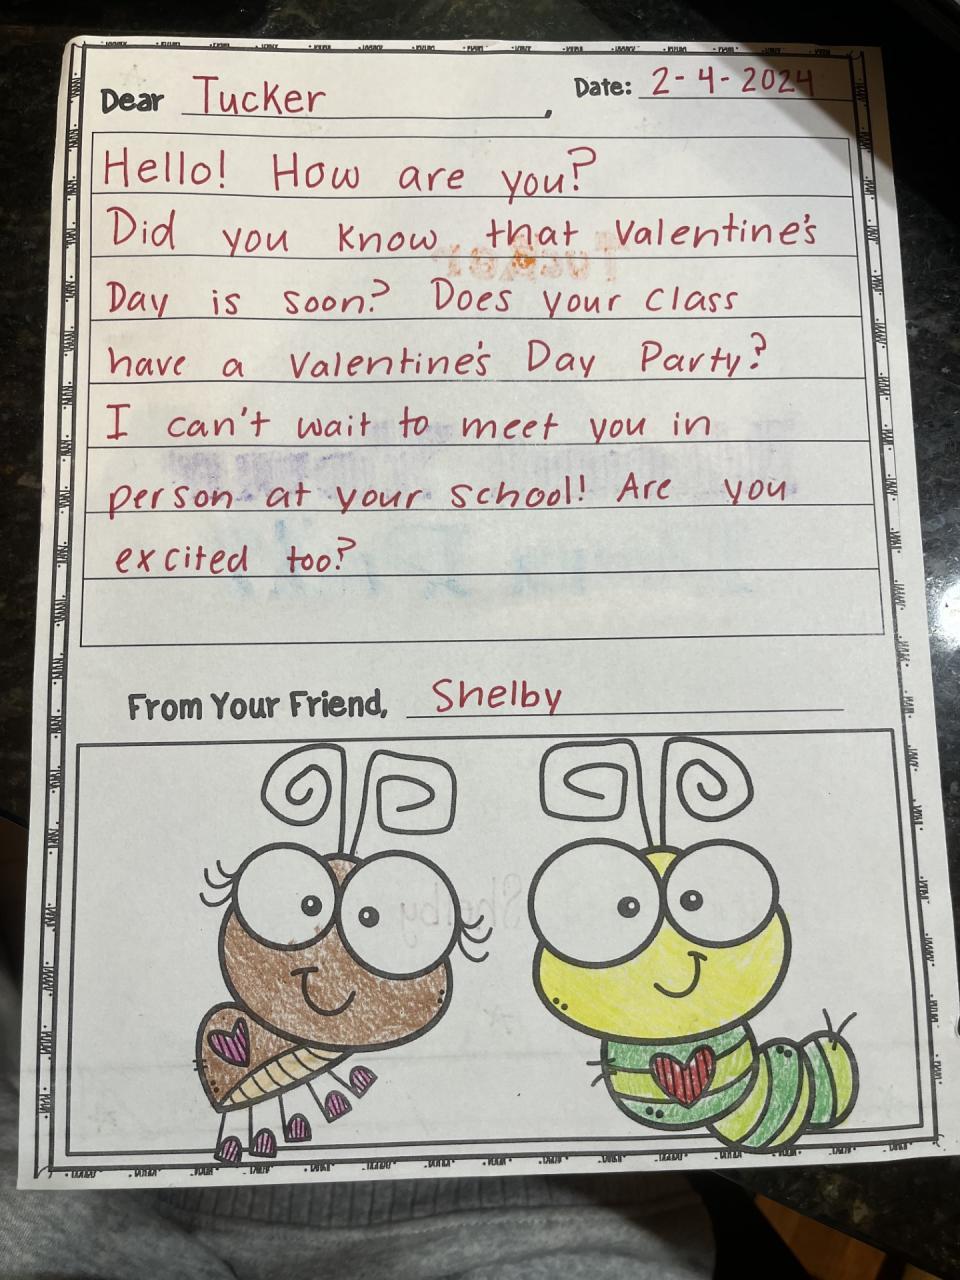 Dear Tucker, Date: 2-4-2024
Hello! How are you?
Did you know that Valentine's
Day is soon? Does your class
have a Valentine's Day Party?
I can't wait to meet you in
person at your school! Are you
excited too?
From Your Friend, Shelby